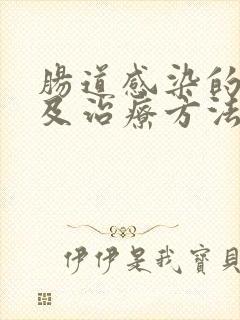 腸道感染的
及治療方法
伊伊是我寶貝